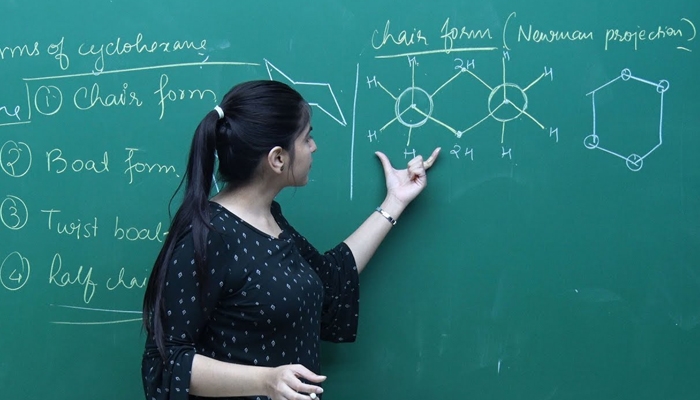 rms of cyclohexane
① Chair form
② Boat form
③ Twist boat
④ Half chai
Chair form (Newman projection)
H 2H H
H H
H H
H 2H H